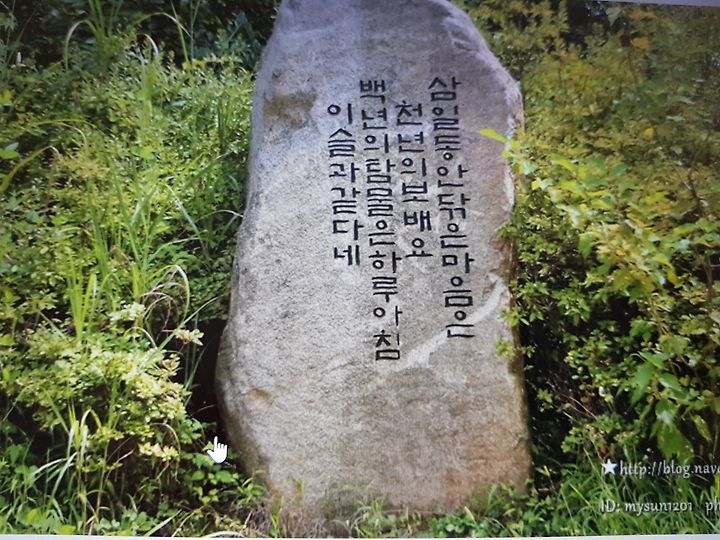 삼일동안닦은마음은
천년의보배요
백년의탐물은하루아침
이슬과같다네
★http://blog.nave
ID: mysun1201 ph